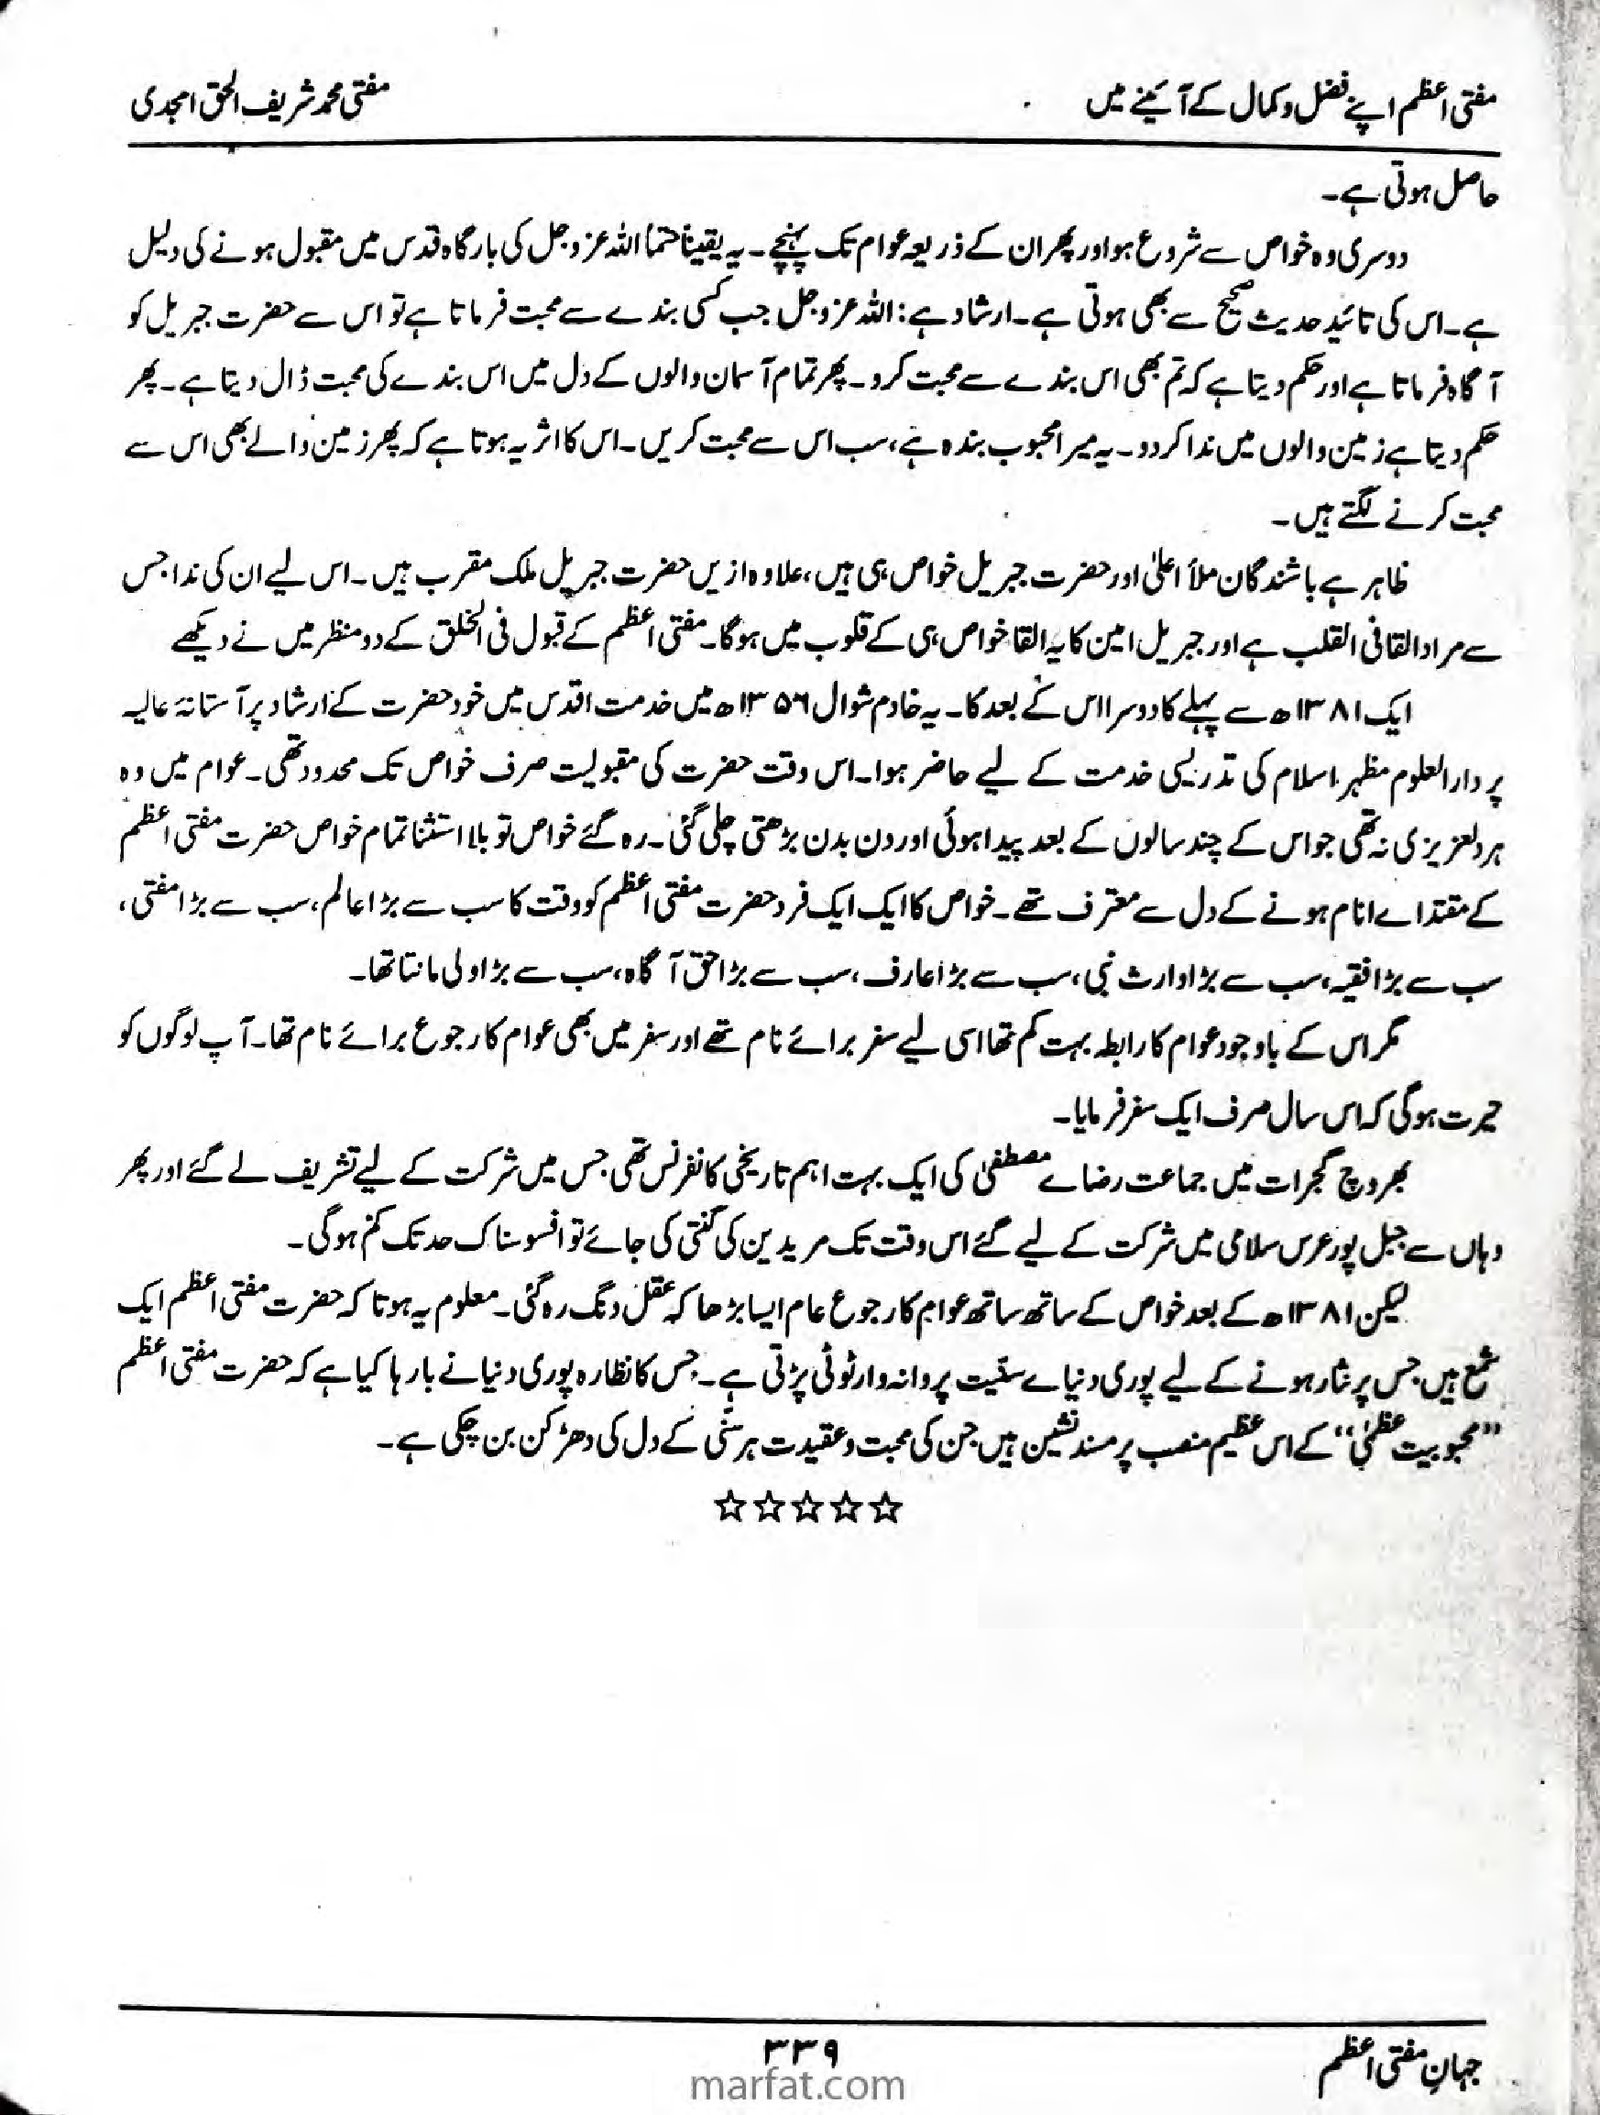 مفتی اعظم اپنے فضل و کمال کے آئینے میں
مفتی محمد شریف الحق امجدی
حاصل ہوتی ہے۔
دوسری وہ خواص سے شروع ہو اور پھر ان کے ذریعہ عوام تک پہنچے۔ یہ یقیناً حتماً اللہ عز و جل کی بارگاہ قدس میں مقبول ہونے کی دلیل
ہے۔ اس کی تائید حدیث صحیح سے بھی ہوتی ہے۔ ارشاد ہے: اللہ عز و جل جب کسی بندے سے محبت فرماتا ہے تو اس سے حضرت جبریل کو
آگاہ فرماتا ہے اور حکم دیتا ہے کہ تم بھی اس بندے سے محبت کرو۔ پھر تمام آسمان والوں کے دل میں اس بندے کی محبت ڈال دیتا ہے۔ پھر
حکم دیتا ہے زمین والوں میں ندا کر دو۔ یہ میرا محبوب بندہ ہے، سب اس سے محبت کریں۔ اس کا اثر یہ ہوتا ہے کہ پھر زمین والے بھی اس سے
محبت کرنے لگتے ہیں۔
ظاہر ہے باشندگان ملأ اعلیٰ اور حضرت جبریل خواص ہی ہیں، علاوہ ازیں حضرت جبریل ملک مقرب ہیں۔ اس لیے ان کی ندا جس
سے مراد القا فی القلب ہے اور جبریل امین کا یہ القا خواص ہی کے قلوب میں ہوگا۔ مفتی اعظم کے قبول فی الخلق کے دو منظر میں نے دیکھے
ایک ۱۳۸۱ھ سے پہلے کا دوسرا اس کے بعد کا۔ یہ خادم شوال ۱۳۵۶ھ میں خدمت اقدس میں خود حضرت کے ارشاد پر آستانۂ عالیہ
پر دارالعلوم مظہر اسلام کی تدریسی خدمت کے لیے حاضر ہوا۔ اس وقت حضرت کی مقبولیت صرف خواص تک محدود تھی۔ عوام میں وہ
ہر دلعزیزی نہ تھی جو اس کے چند سالوں کے بعد پیدا ہوئی اور دن بدن بڑھتی چلی گئی۔ رہ گئے خواص تو بلا استثنا تمام خواص حضرت مفتی اعظم
کے مقتداے انام ہونے کے دل سے معترف تھے۔ خواص کا ایک ایک فرد حضرت مفتی اعظم کو وقت کا سب سے بڑا عالم، سب سے بڑا مفتی،
سب سے بڑا فقیہ، سب سے بڑا وارث نبی، سب سے بڑا عارف، سب سے بڑا حق آگاہ، سب سے بڑا ولی مانتا تھا۔
مگر اس کے باوجود عوام کا رابطہ بہت کم تھا اسی لیے سفر برائے نام تھے اور سفر میں بھی عوام کا رجوع برائے نام تھا۔ آپ لوگوں کو
حیرت ہوگی کہ اس سال صرف ایک سفر فرمایا۔
بھروچ گجرات میں جماعت رضاے مصطفیٰ کی ایک بہت اہم تاریخی کانفرنس تھی جس میں شرکت کے لیے تشریف لے گئے اور پھر
وہاں سے جبل پور عرس سلامی میں شرکت کے لیے گئے اس وقت تک مریدین کی گنتی کی جائے تو افسوسناک حد تک کم ہوگی۔
لیکن ۱۳۸۱ھ کے بعد خواص کے ساتھ ساتھ عوام کا رجوع عام ایسا بڑھا کہ عقل دنگ رہ گئی۔ معلوم یہ ہوتا کہ حضرت مفتی اعظم ایک
شمع ہیں جس پر نثار ہونے کے لیے پوری دنیاے سنیت پروانہ وار ٹوٹی پڑتی ہے۔ جس کا نظارہ پوری دنیا نے بارہا کیا ہے کہ حضرت مفتی اعظم
”محبوبیت عظمیٰ“ کے اس عظیم منصب پر مسند نشین ہیں جن کی محبت و عقیدت ہر سنی کے دل کی دھڑکن بن چکی ہے۔
☆☆☆☆☆
۳۳۹
جہانِ مفتی اعظم
marfat.com